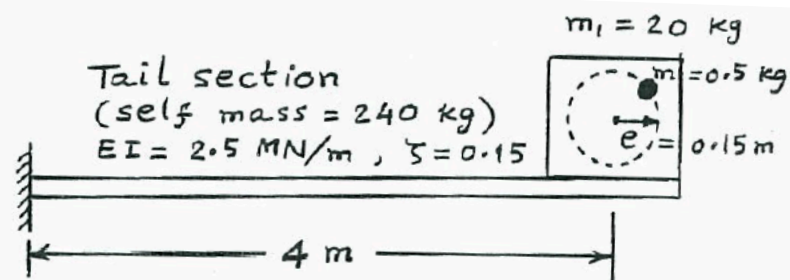 m₁ = 20 kg
Tail section
m = 0.5 kg
(self mass = 240 kg)
EI = 2.5 MN/m , ζ = 0.15
e = 0.15 m
4 m